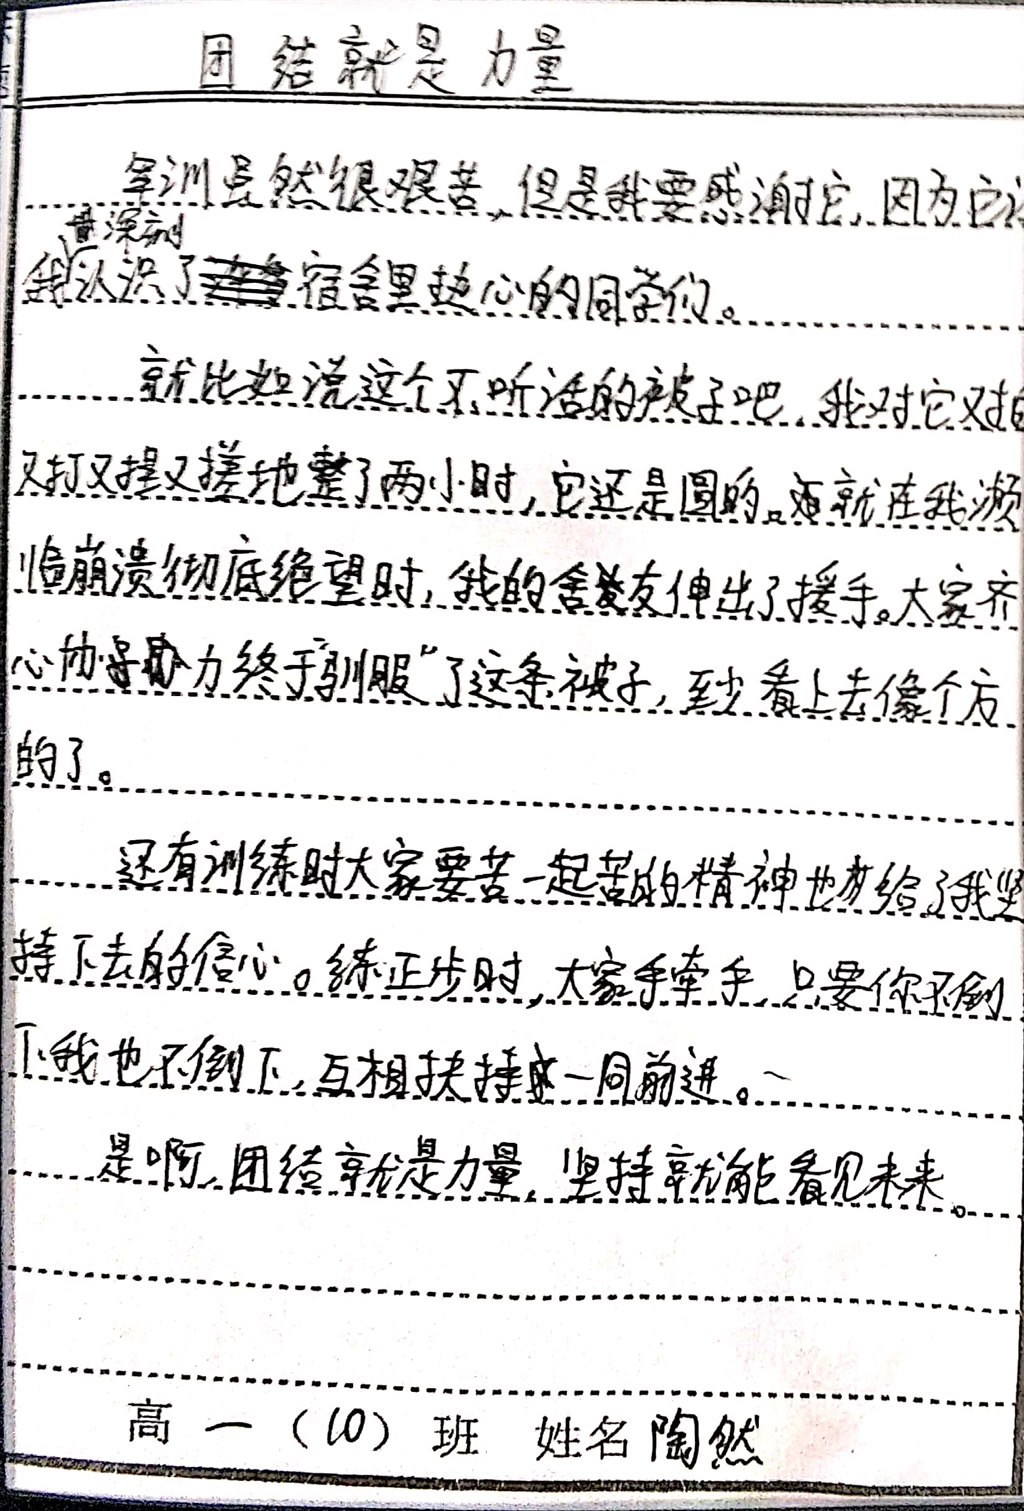 团结就是力量
军训虽然很艰苦,但是我要感谢它,因为它让
深刻
我认识了宿舍里热心的同学们。
就比如说这个不听话的被子吧,我对它又拍
又打又捏又搓地整了两小时,它还是圆的。就在我濒
临崩溃彻底绝望时,我的舍友伸出了援手。大家齐
心协力终于“驯服”了这条被子,至少看上去像个方
的了。
还有训练时大家要苦一起苦的精神也给了我坚
持下去的信心。练正步时,大家手牵手,只要你不倒
下我也不倒下,互相扶持一同前进。
是啊,团结就是力量,坚持就能看见未来。
高一(10)班 姓名陶然